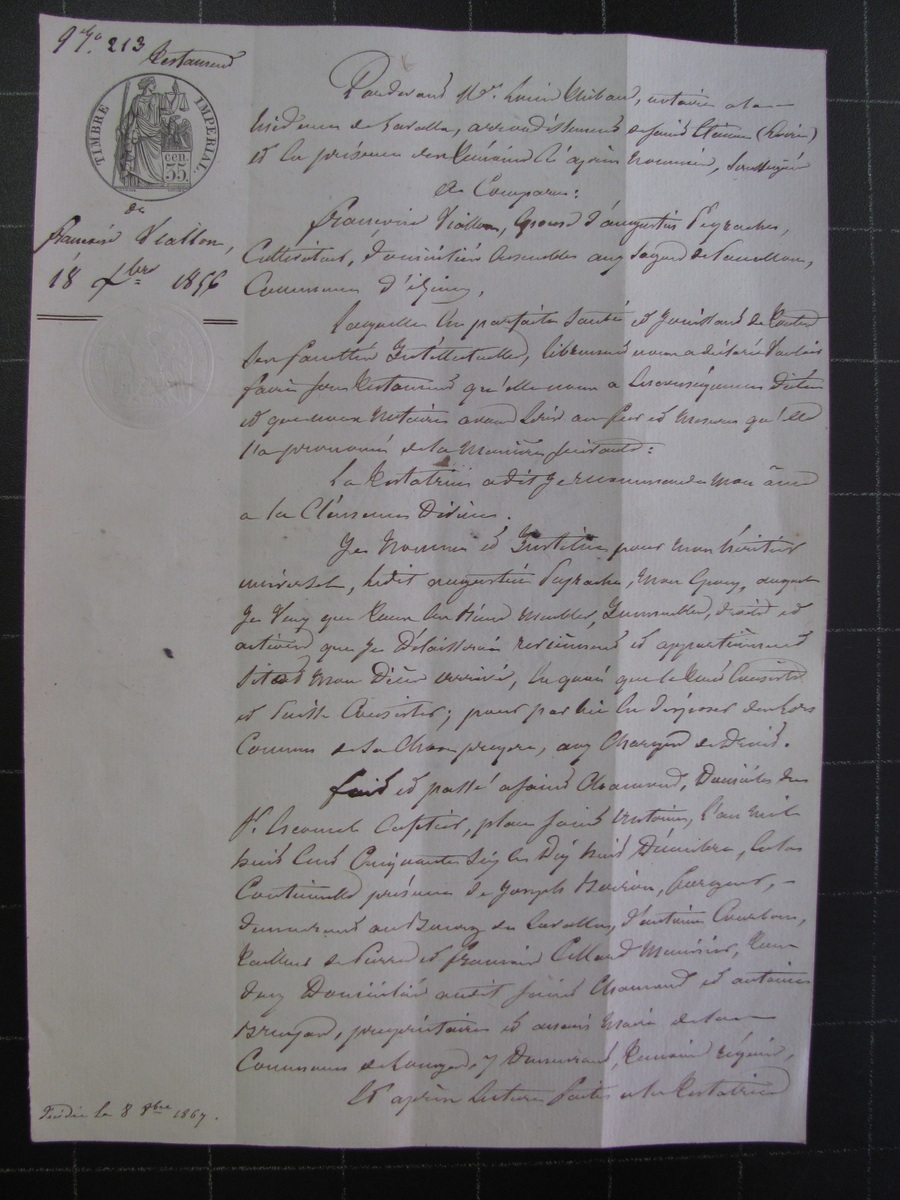 213
Testament
TIMBRE IMPERIAL
35 cen.
de
françoise Viallon,
18 Xbre 1856
Pardevant Me. Thibaud, notaire a la
résidence de Lavalla, arrondissement de saint Etienne (Loire)
et en présence des témoins ci après nommés, soussignés
A Comparu:
françoise Viallon, épouse d'augustin Peyrache,
Cultivateur, domiciliés ensemble aux
Commune d'izieux,
Laquelle en parfaite santé et jouissant de toutes
ses facultés intellectuelles, librement nous a déclaré vouloir
faire son testament qu'elle nous a en conséquence dicté
et que nous notaire avons écrit au fur et mesure qu'elle
l'a prononcé de la manière suivante:
La testatrice a dit je recommande mon âme
a la Clémence Divine.
Je Nomme et Institue pour mon héritier
universel, ledit augustin Peyrache, mon époux, auquel
je veux que tous les biens meubles, immeubles, droits et
actions que je délaisserai reviennent et appartiennent
sitot mon Décès arrivé, en quoi que le tout consiste
et puisse consister; pour par lui en disposer dès lors
comme de sa chose propre, aux charges de droit.
fait et passé a saint Chamond, Domicile du
sr. cafetier, place saint antoine, l'an mil
huit cent cinquante six le dix huit Décembre, en la
continuelle présence de Joseph forgeur,
demeurant au Bourg de Lavalla, d'antoine Courbon,
tailleur de pierre et françois menuisier, tous
deux domiciliés audit saint Chamond et antoine
propriétaire et ancien maire de la
Commune de y demeurant, témoins requis,
Et après lecture faite a la testatrice
le 8 8bre 1867.